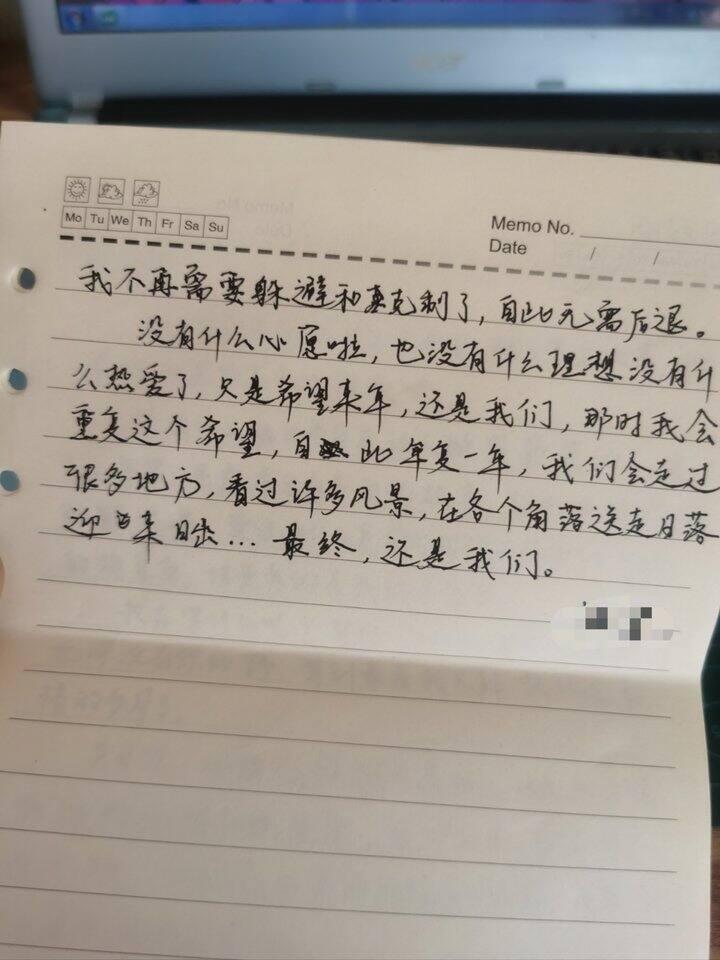 Mo Tu We Th Fr Sa Su
Memo No.
Date / /
我不再需要躲避和克制了，自此无需后退。
没有什么心愿啦，也没有什么理想没有什
么热爱了，只是希望来年，还是我们，那时我会
重复这个希望，自此年复一年，我们会走过
很多地方，看过许多风景，在各个角落送走日落
迎来日出...最终，还是我们。